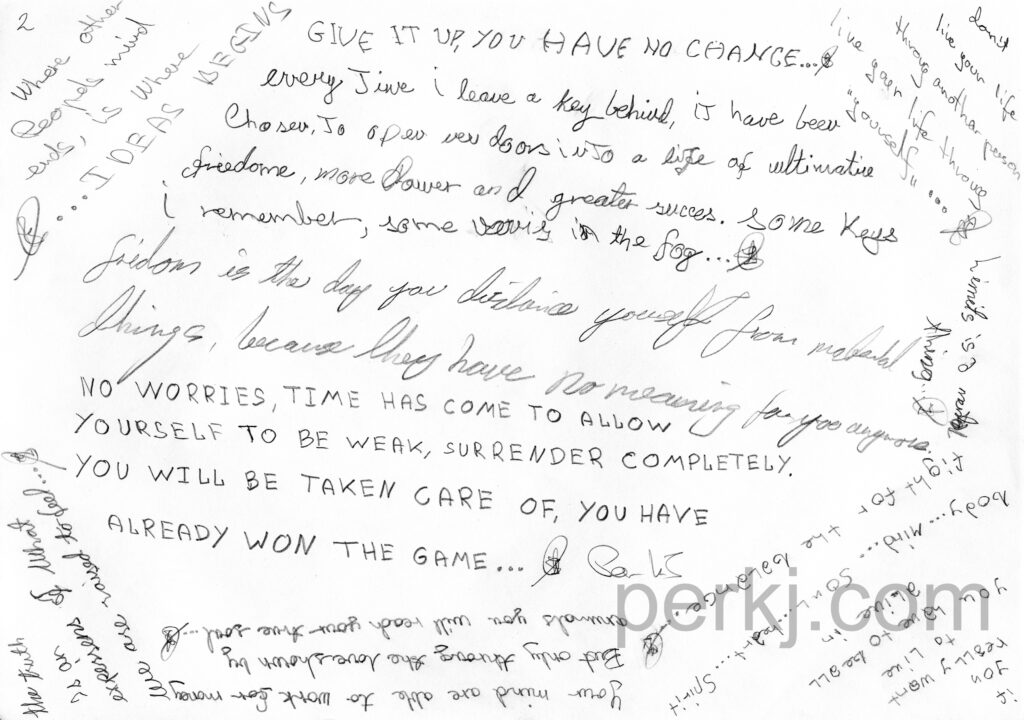 2
GIVE IT UP, YOU HAVE NO CHANGE...
every Time i leave a key behind, it have been
Chosen, To open new doors into a life of ultimative
freedome, more Power and greater succes. Some Keys
i remember, some in the fog...
fridom is the day you distance yourself from material
things, because they have no meaning for you anymore.
NO WORRIES, TIME HAS COME TO ALLOW
YOURSELF TO BE WEAK, SURRENDER COMPLETELY.
YOU WILL BE TAKEN CARE OF, YOU HAVE
ALREADY WON THE GAME...
Where other
Peoples mind
ends, is Where
....IDEAS BEGINS
don't
live your life
throug another person
live your life throug
"yourself"....
Limits is a
things..
fight for the balance..
body... mind... soul... heart... Spirit
if you
really want
to live
you have to be all
alive in
Your mind are able to work for money
But only throug the love shown by
animals you will reach your true soul...
the truth
is an expressens of What
We are raised to feel...
perkj.com